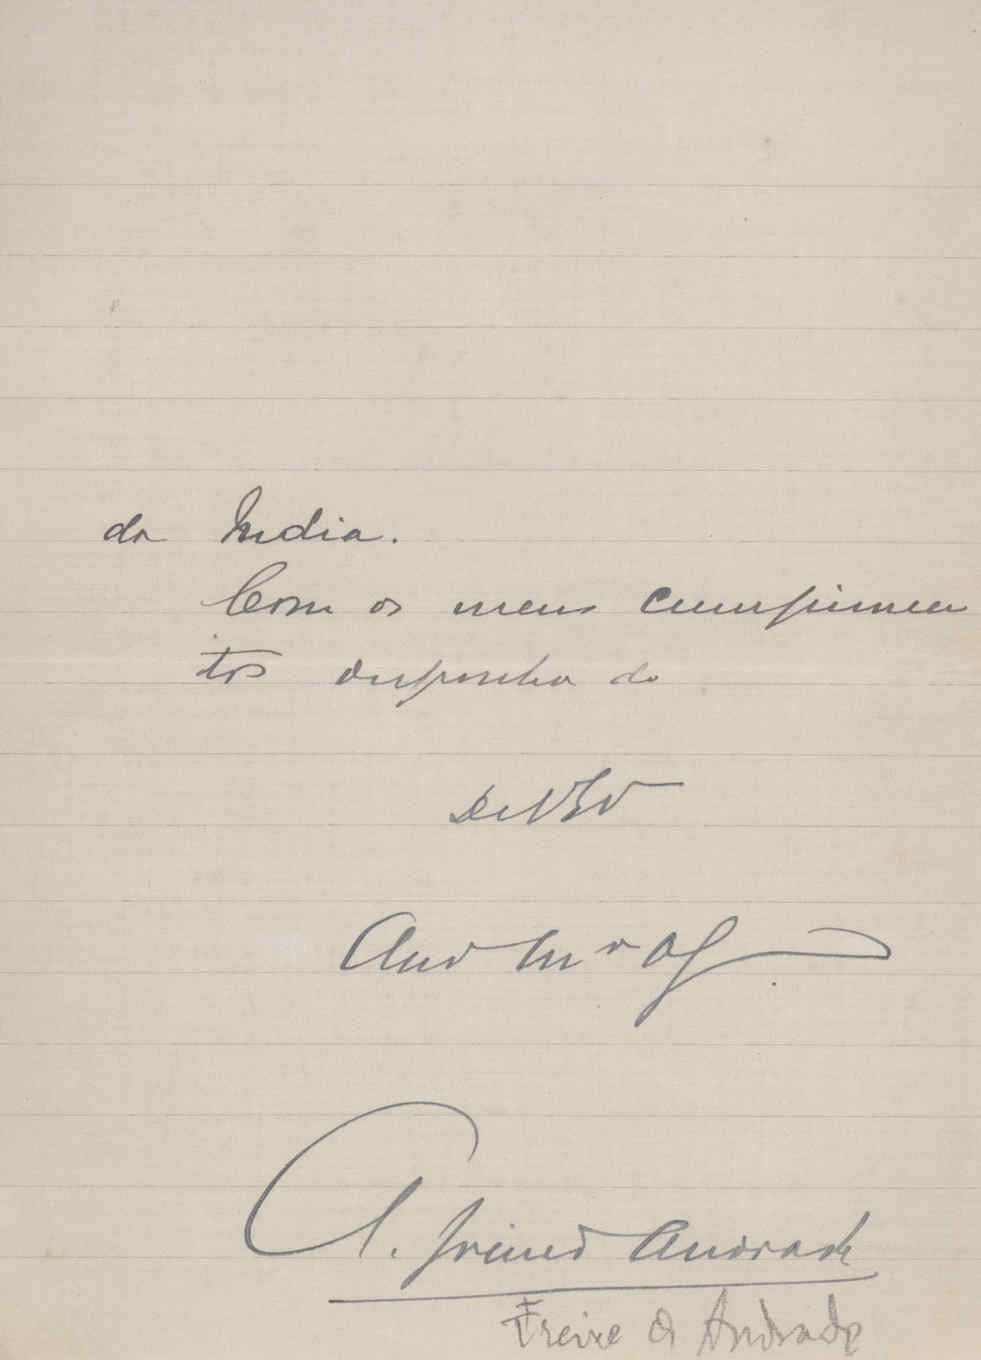 da India.
Com os meus cumprimen
tos disponha do
De V Exª
A. Freire d'Andrade
Freire d'Andrade